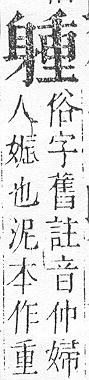 俗字舊註音仲婦
人娠也泥本作重